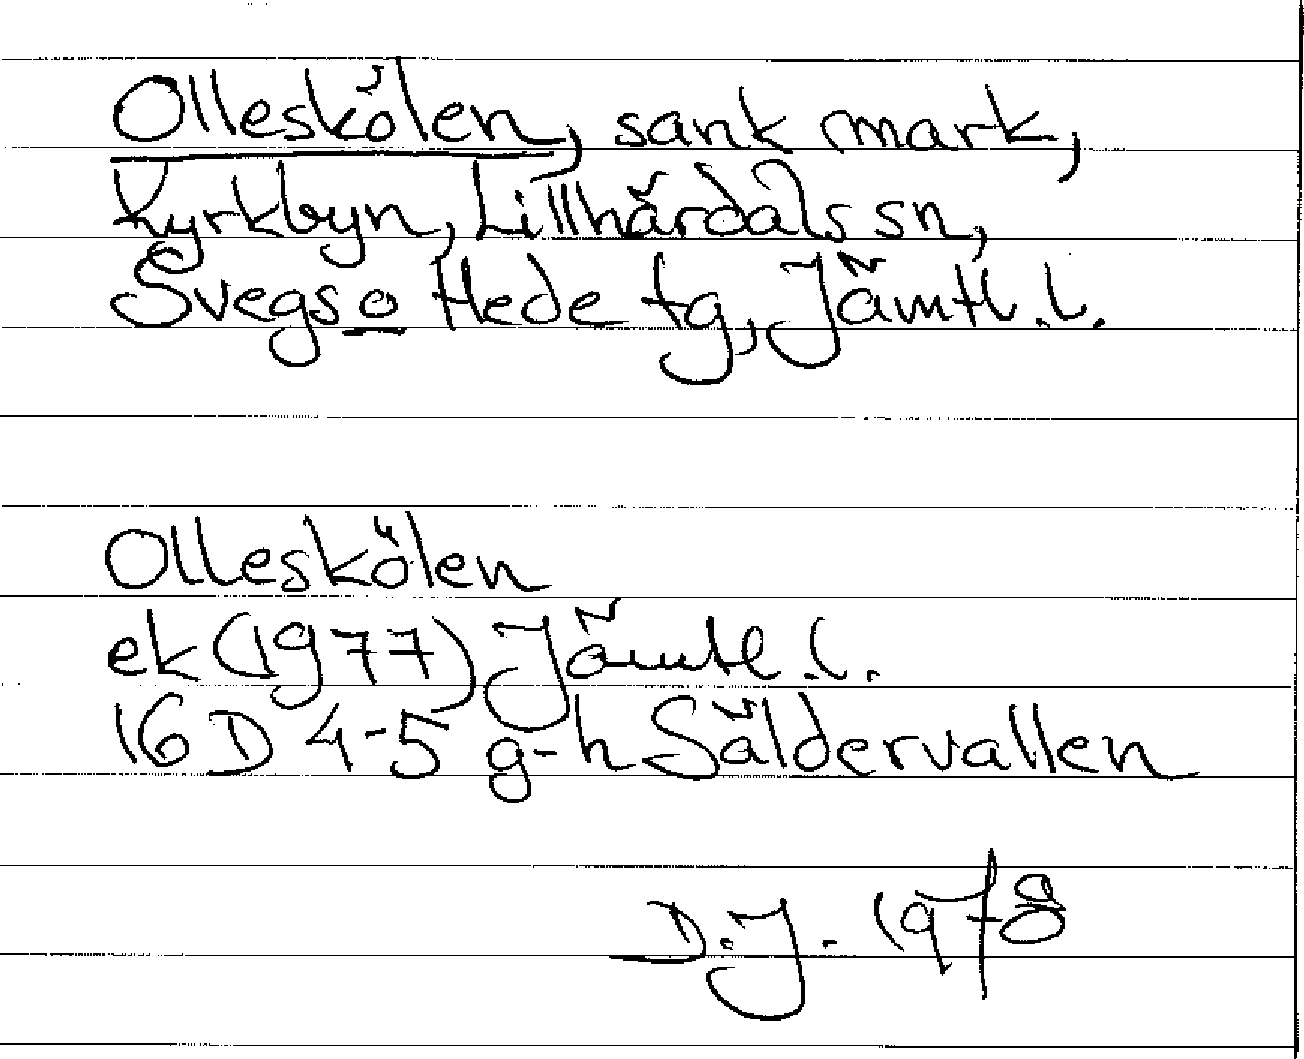 Olleskölen, sank mark,
Kyrkbyn, Lillhärdals sn,
Svegs o Hede tg, Jämtl. l.
Olleskölen
ek (1977) Jämtl. l.
16 D 4-5 g-h Säldervallen
D.J. 1978